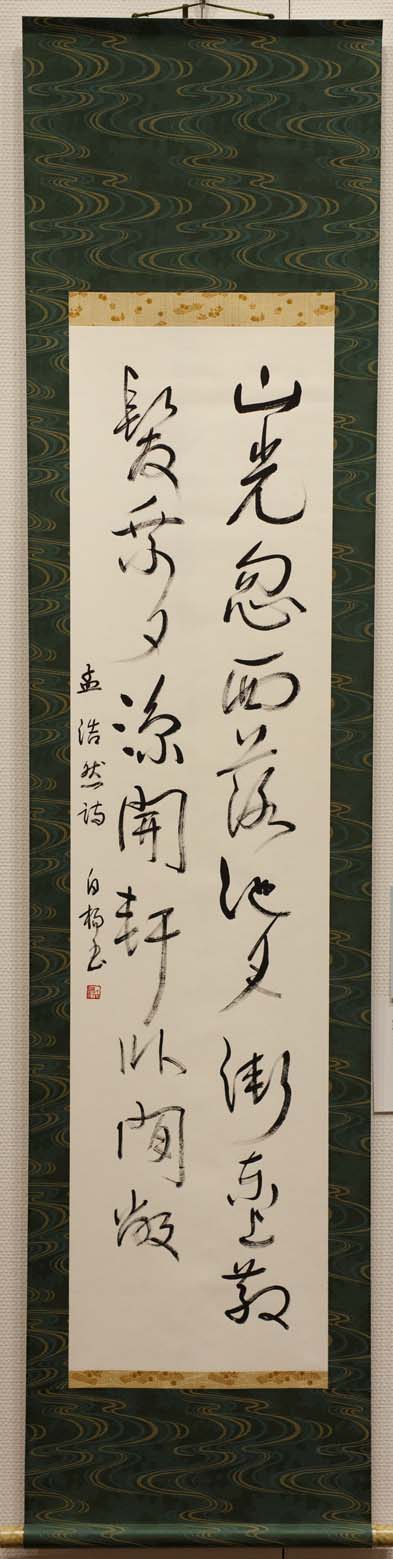 山光忽西落池月漸東上散
髪乗夕涼開軒臥閒敞
孟浩然詩 書